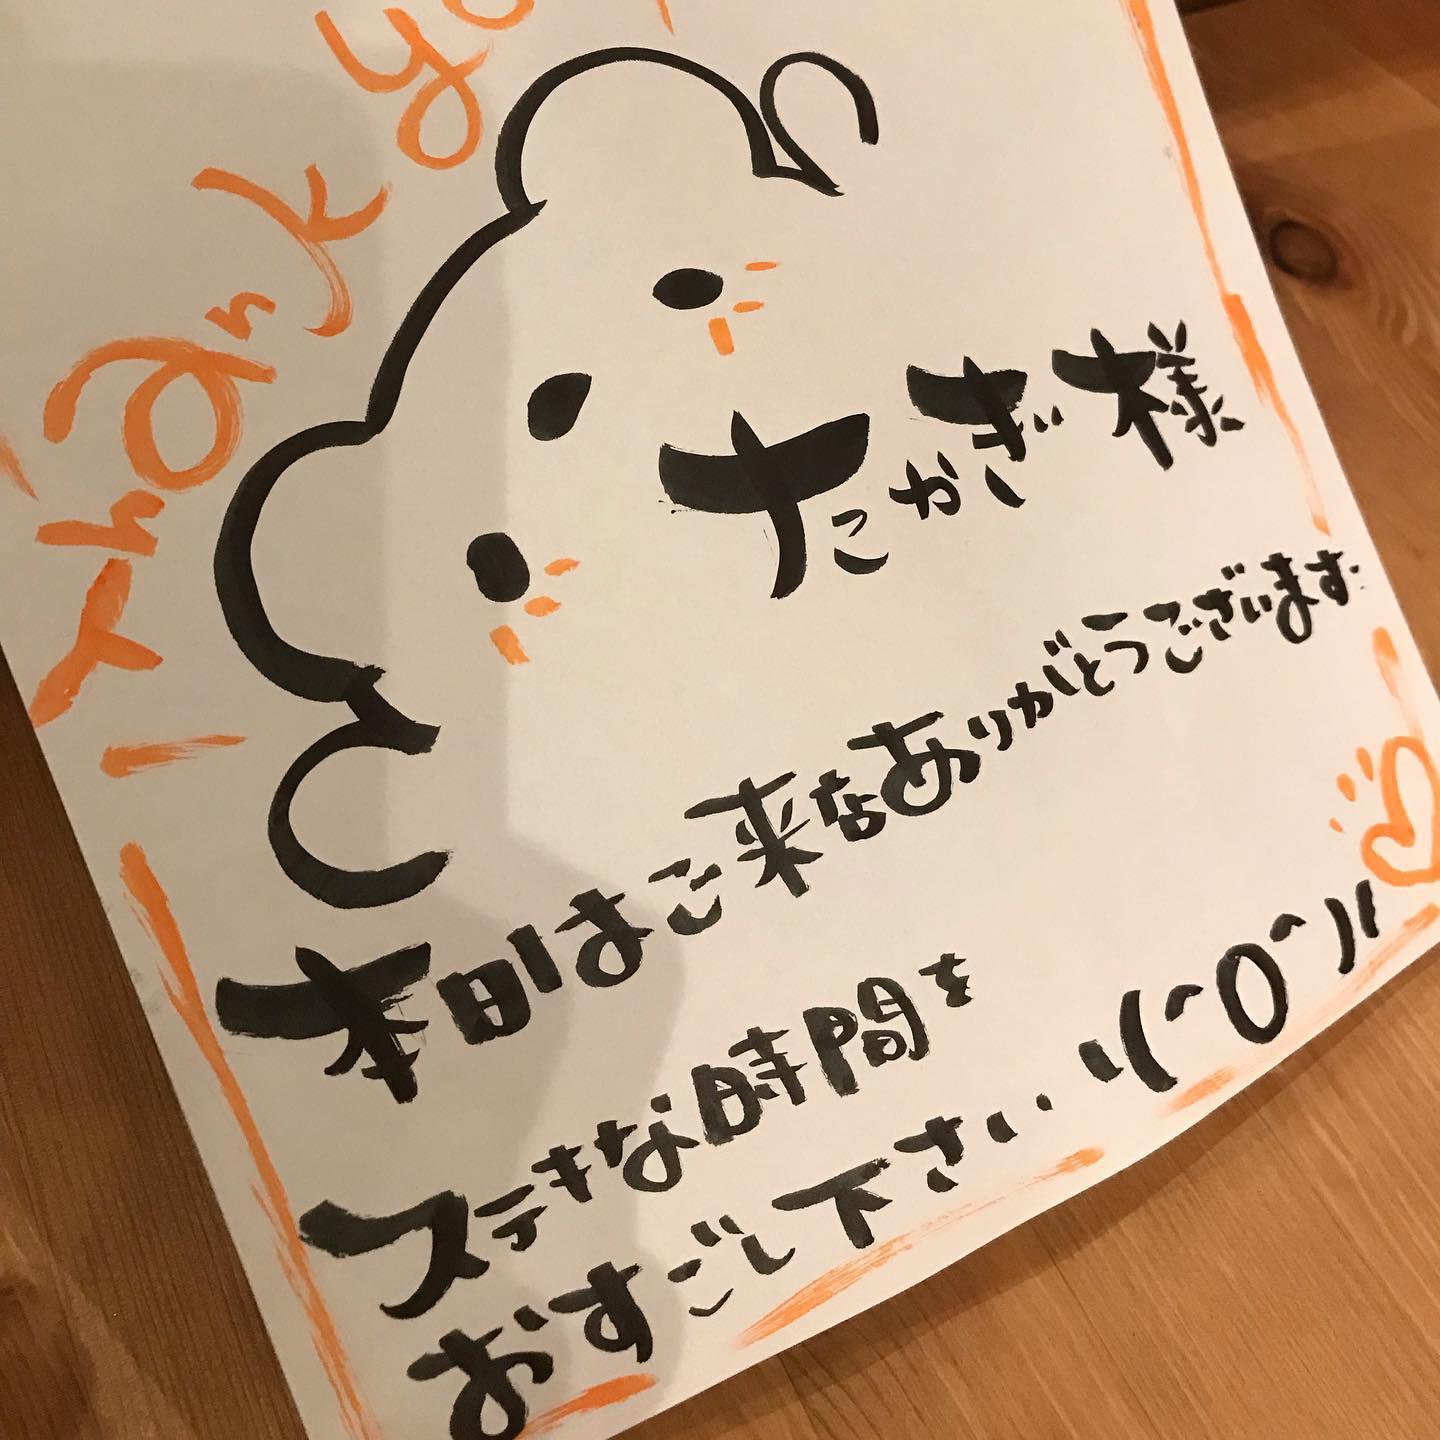 Thank yo
たかぎ様
本日はご来店ありがとうございます
ステキな時間を
おすごし下さい